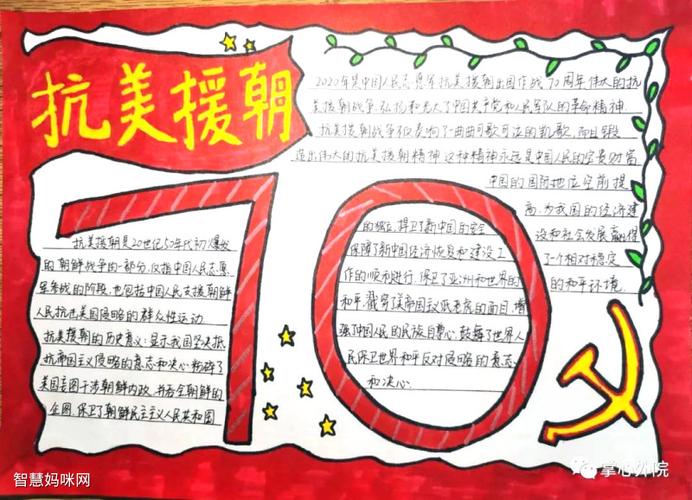 抗美援朝
2020年是中国人民志愿军抗美援朝出国作战70周年伟大的抗
美援朝战争,弘扬和光大了中国共产党和人民军队的革命精神
抗美援朝战争不仅奏响了一曲曲可歌可泣的凯歌,而且锻
造出伟大的抗美援朝精神这种精神永远是中国人民的宝贵财富
中国的国际地位空前提
高,为我国的经济建
设和社会发展赢得
了一个相对稳定
的和平环境
70
抗美援朝是20世纪50年代初爆发
的朝鲜战争的一部分,仅指中国人民志愿
军参战的阶段,也包括中国人民支援朝鲜
人民抗击美国侵略的群众性运动
抗美援朝的历史意义:显示我国坚决抵
抗帝国主义侵略的意志和决心粉碎了
美国主图干涉朝鲜内政,并吞全朝鲜的
企图,保卫了朝鲜民主主义人民共和国
的独立,捍卫了新中国的安全
保障了新中国经济恢复和建设工
作的顺利进行,保卫了亚洲和世界的
和平戳穿了美帝国义纸老虎的面目,增
强了中国人民的民族自尊心,鼓舞了世界人
民保卫世界和平反对侵略的意志
和决心
智慧妈咪网
掌心外院